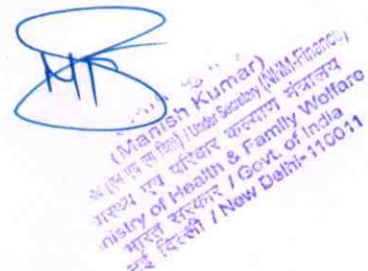 (Manish Kumar)
/ Under Secretary (NHM-Finance)
एवं परिवार कल्याण मंत्रालय
Ministry of Health & Family Welfare
भारत सरकार / Govt. of India
नई दिल्ली / New Delhi-110011